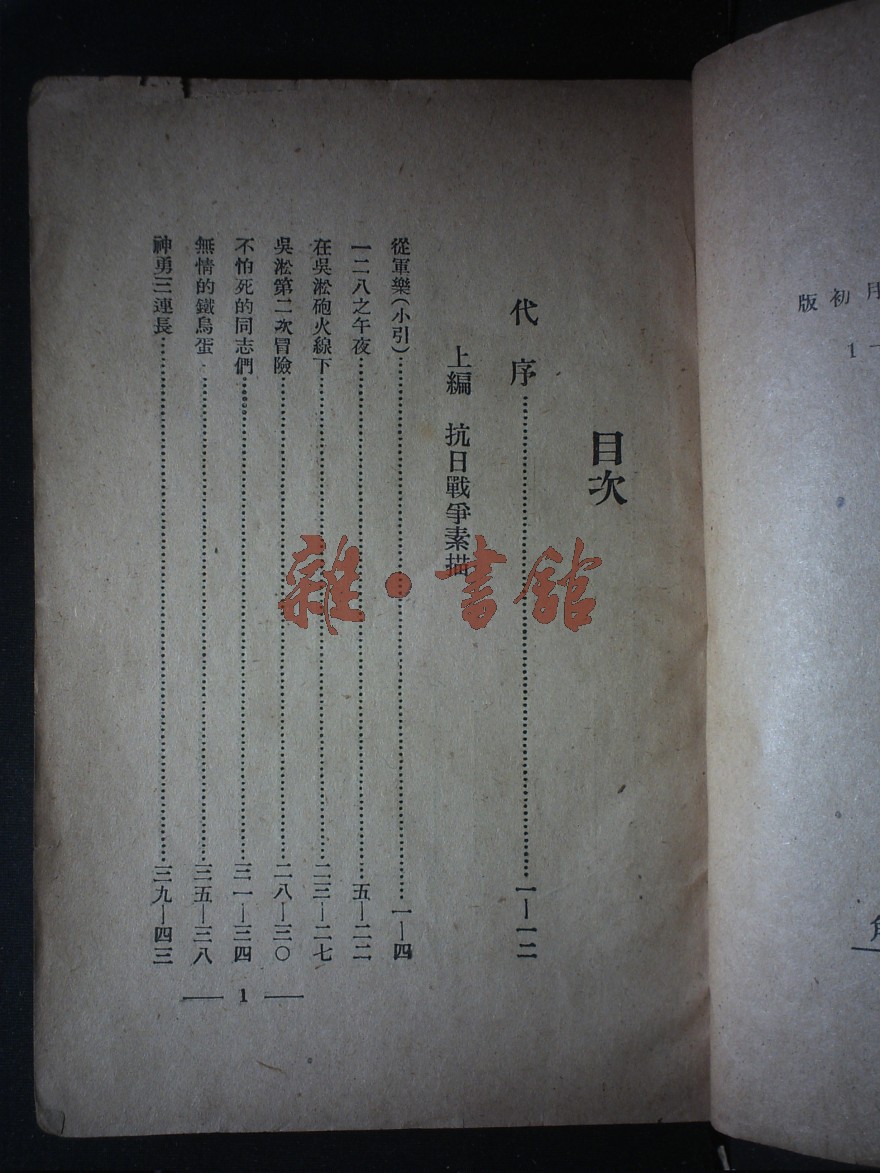 月初版
1—
目次
代序……一—一二
上編　抗日戰爭素描
從軍樂(小引)……一—四
一二八之午夜……五—二二
在吳淞砲火線下……二三—二七
吳淞第二次冒險……二八—三〇
不怕死的同志們……三一—三四
無情的鐵鳥蛋……三五—三八
神勇三連長……三九—四三
— 1 —
雜·書館